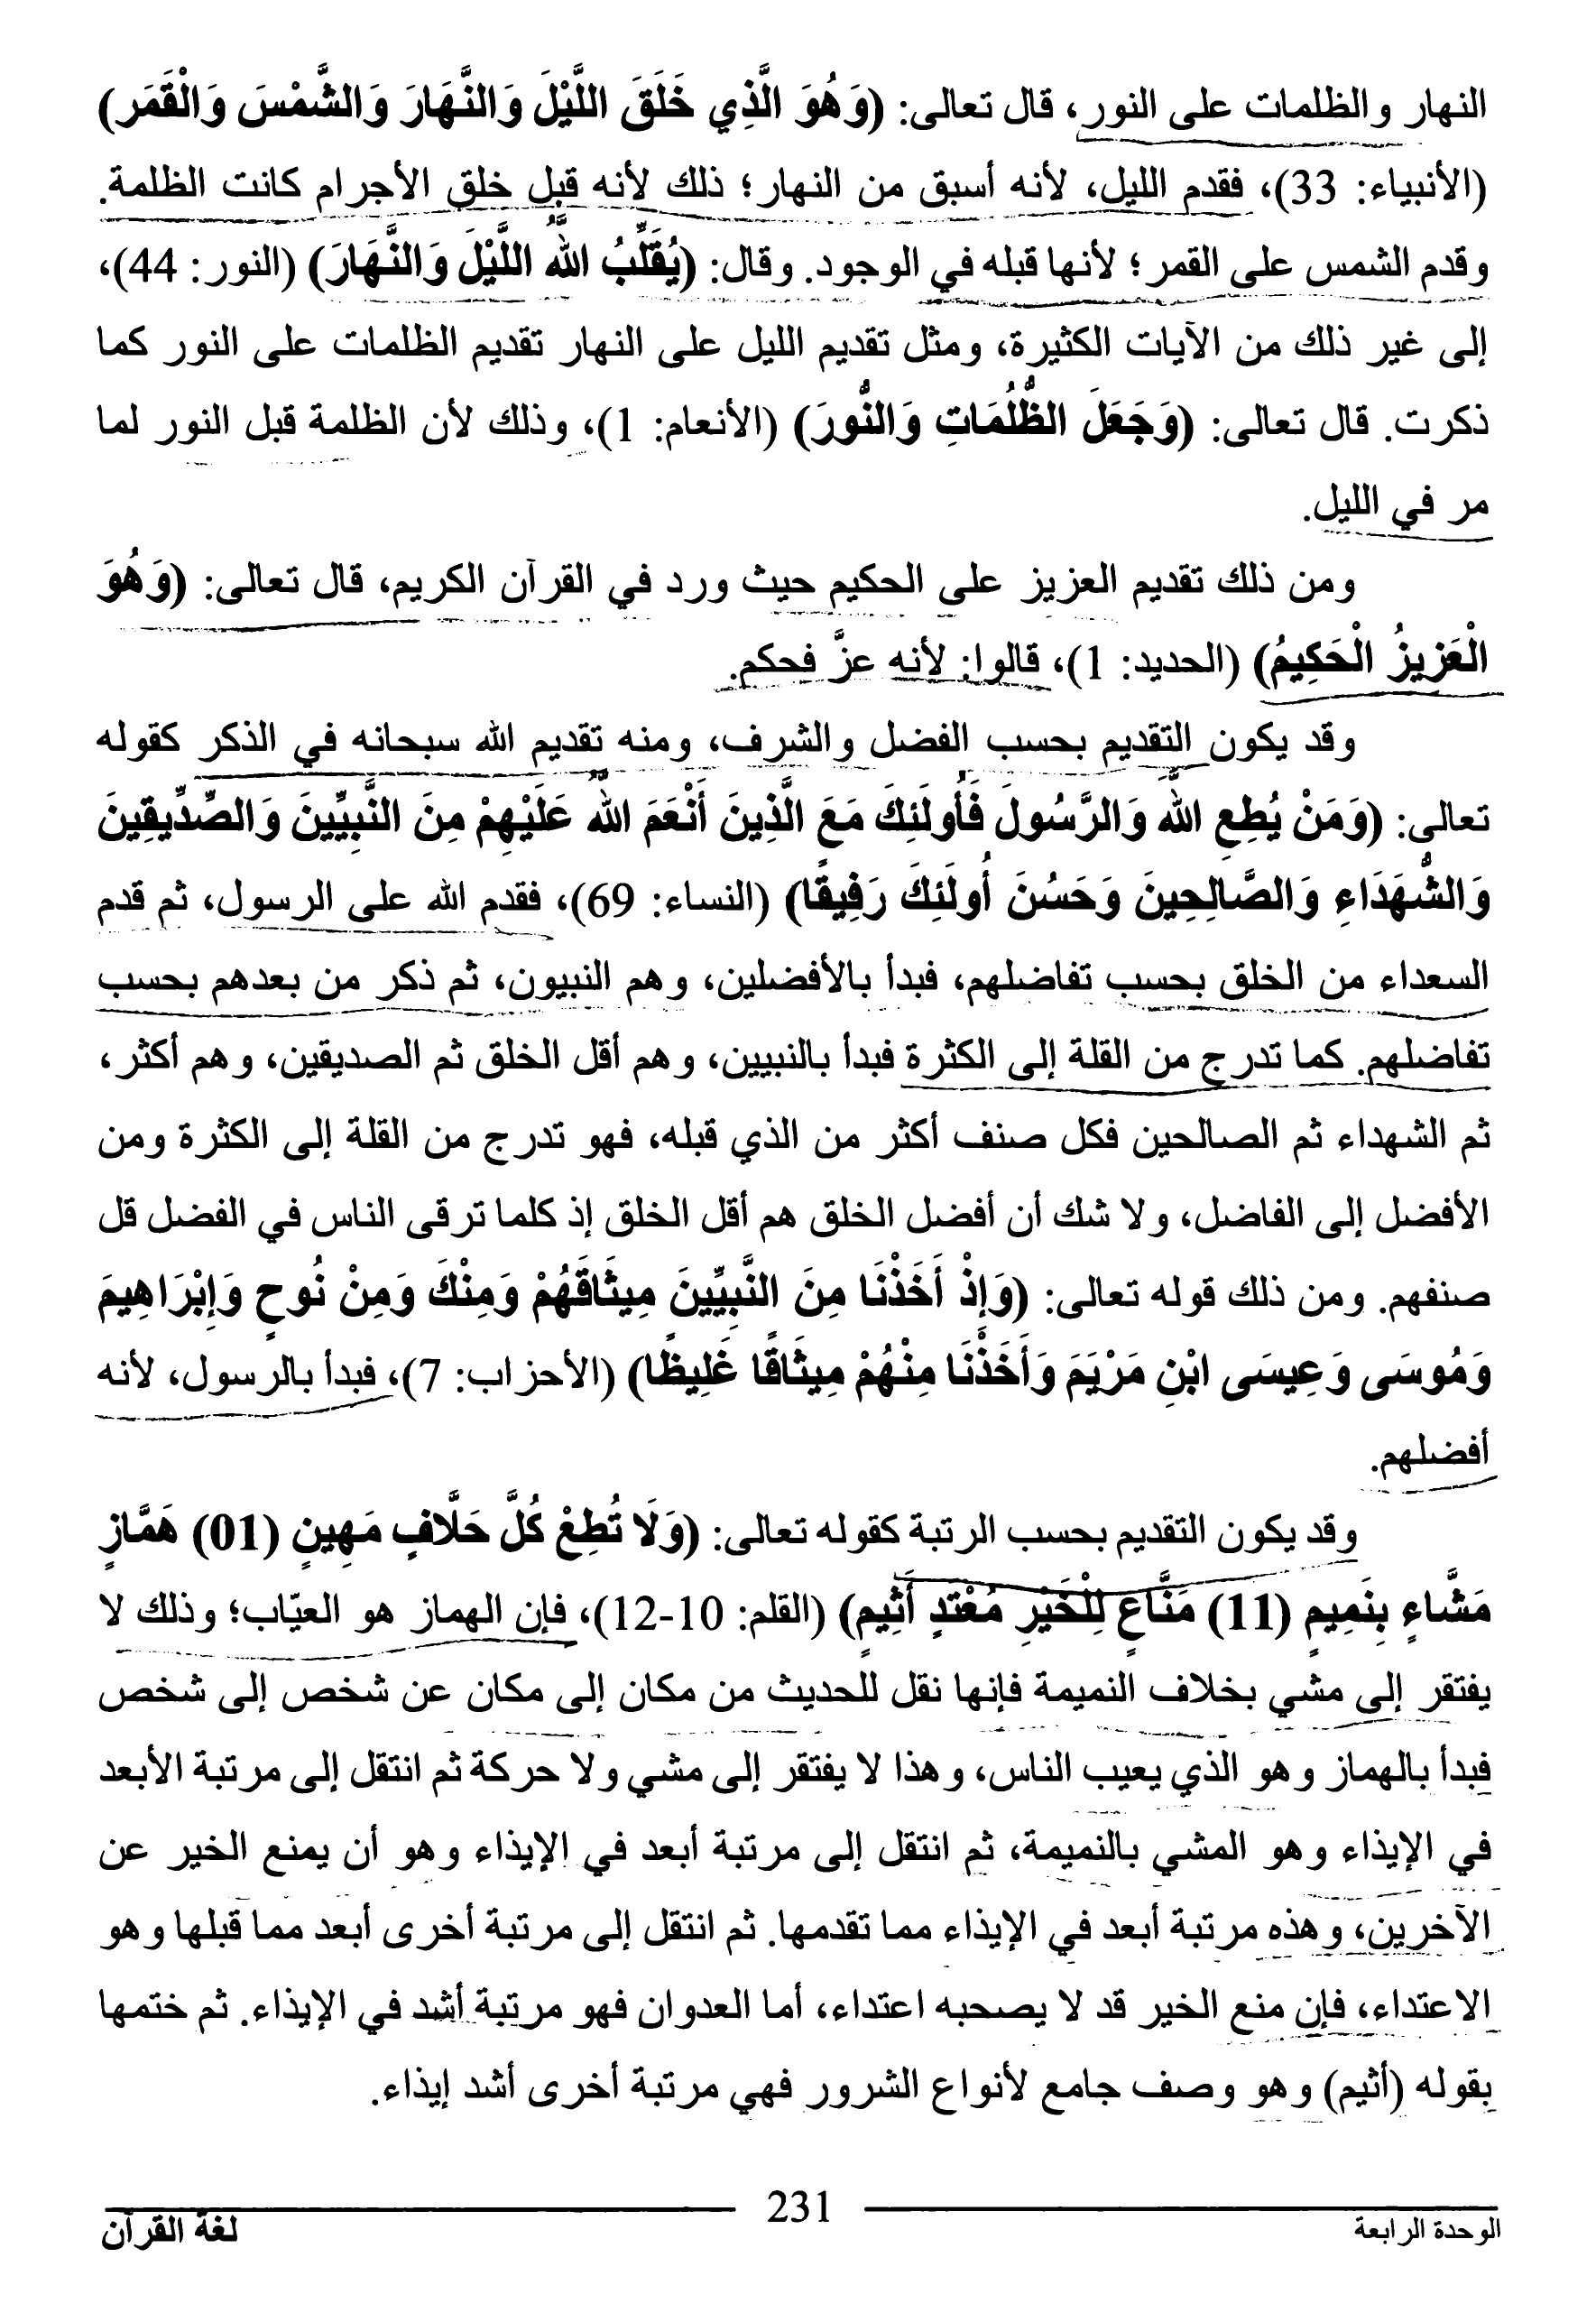 النهار والظلمات على النور، قال تعالى: (وَهُوَ الَّذِي خَلَقَ اللَّيْلَ وَالنَّهَارَ وَالشَّمْسَ وَالْقَمَر)
(الأنبياء: 33)، فقدم الليل، لأنه أسبق من النهار؛ ذلك لأنه قبل خلق الأجرام كانت الظلمة.
وقدم الشمس على القمر؛ لأنها قبله في الوجود. وقال: (يُقَلِّبُ اللَّهُ اللَّيْلَ وَالنَّهَارَ) (النور: 44)،
إلى غير ذلك من الآيات الكثيرة، ومثل تقديم الليل على النهار تقديم الظلمات على النور كما
ذكرت. قال تعالى: (وَجَعَلَ الظُّلُمَاتِ وَالنُّورَ) (الأنعام: 1)، وذلك لأن الظلمة قبل النور لما
مر في الليل.
ومن ذلك تقديم العزيز على الحكيم حيث ورد في القرآن الكريم، قال تعالى: (وَهُوَ
الْعَزِيزُ الْحَكِيمُ) (الحديد: 1)، قالوا: لأنه عزَّ فحكم.
وقد يكون التقديم بحسب الفضل والشرف، ومنه تقديم الله سبحانه في الذكر كقوله
تعالى: (وَمَنْ يُطِعِ اللَّهَ وَالرَّسُولَ فَأُولَئِكَ مَعَ الَّذِينَ أَنْعَمَ اللَّهُ عَلَيْهِمْ مِنَ النَّبِيِّينَ وَالصِّدِّيقِينَ
وَالشُّهَدَاءِ وَالصَّالِحِينَ وَحَسُنَ أُولَئِكَ رَفِيقًا) (النساء: 69)، فقدم الله على الرسول، ثم قدم
السعداء من الخلق بحسب تفاضلهم، فبدأ بالأفضلين، وهم النبيون، ثم ذكر من بعدهم بحسب
تفاضلهم. كما تدرج من القلة إلى الكثرة فبدأ بالنبيين، وهم أقل الخلق ثم الصديقين، وهم أكثر،
ثم الشهداء ثم الصالحين فكل صنف أكثر من الذي قبله، فهو تدرج من القلة إلى الكثرة ومن
الأفضل إلى الفاضل، ولا شك أن أفضل الخلق هم أقل الخلق إذ كلما ترقى الناس في الفضل قل
صنفهم. ومن ذلك قوله تعالى: (وَإِذْ أَخَذْنَا مِنَ النَّبِيِّينَ مِيثَاقَهُمْ وَمِنْكَ وَمِنْ نُوحٍ وَإِبْرَاهِيمَ
وَمُوسَى وَعِيسَى ابْنِ مَرْيَمَ وَأَخَذْنَا مِنْهُمْ مِيثَاقًا غَلِيظًا) (الأحزاب: 7)، فبدأ بالرسول، لأنه
أفضلهم.
وقد يكون التقديم بحسب الرتبة كقوله تعالى: (وَلَا تُطِعْ كُلَّ حَلَّافٍ مَهِينٍ (01) هَمَّازٍ
مَشَّاءٍ بِنَمِيمٍ (11) مَنَّاعٍ لِلْخَيْرِ مُعْتَدٍ أَثِيمٍ) (القلم: 10-12)، فإن الهماز هو العيّاب؛ وذلك لا
يفتقر إلى مشي بخلاف النميمة فإنها نقل للحديث من مكان إلى مكان عن شخص إلى شخص
فبدأ بالهماز وهو الذي يعيب الناس، وهذا لا يفتقر إلى مشي ولا حركة ثم انتقل إلى مرتبة الأبعد
في الإيذاء وهو المشي بالنميمة، ثم انتقل إلى مرتبة أبعد في الإيذاء وهو أن يمنع الخير عن
الآخرين، وهذه مرتبة أبعد في الإيذاء مما تقدمها. ثم انتقل إلى مرتبة أخرى أبعد مما قبلها وهو
الاعتداء، فإن منع الخير قد لا يصحبه اعتداء، أما العدوان فهو مرتبة أشد في الإيذاء. ثم ختمها
بقوله (أثيم) وهو وصف جامع لأنواع الشرور فهي مرتبة أخرى أشد إيذاء.
231
الوحدة الرابعة
لغة القرآن